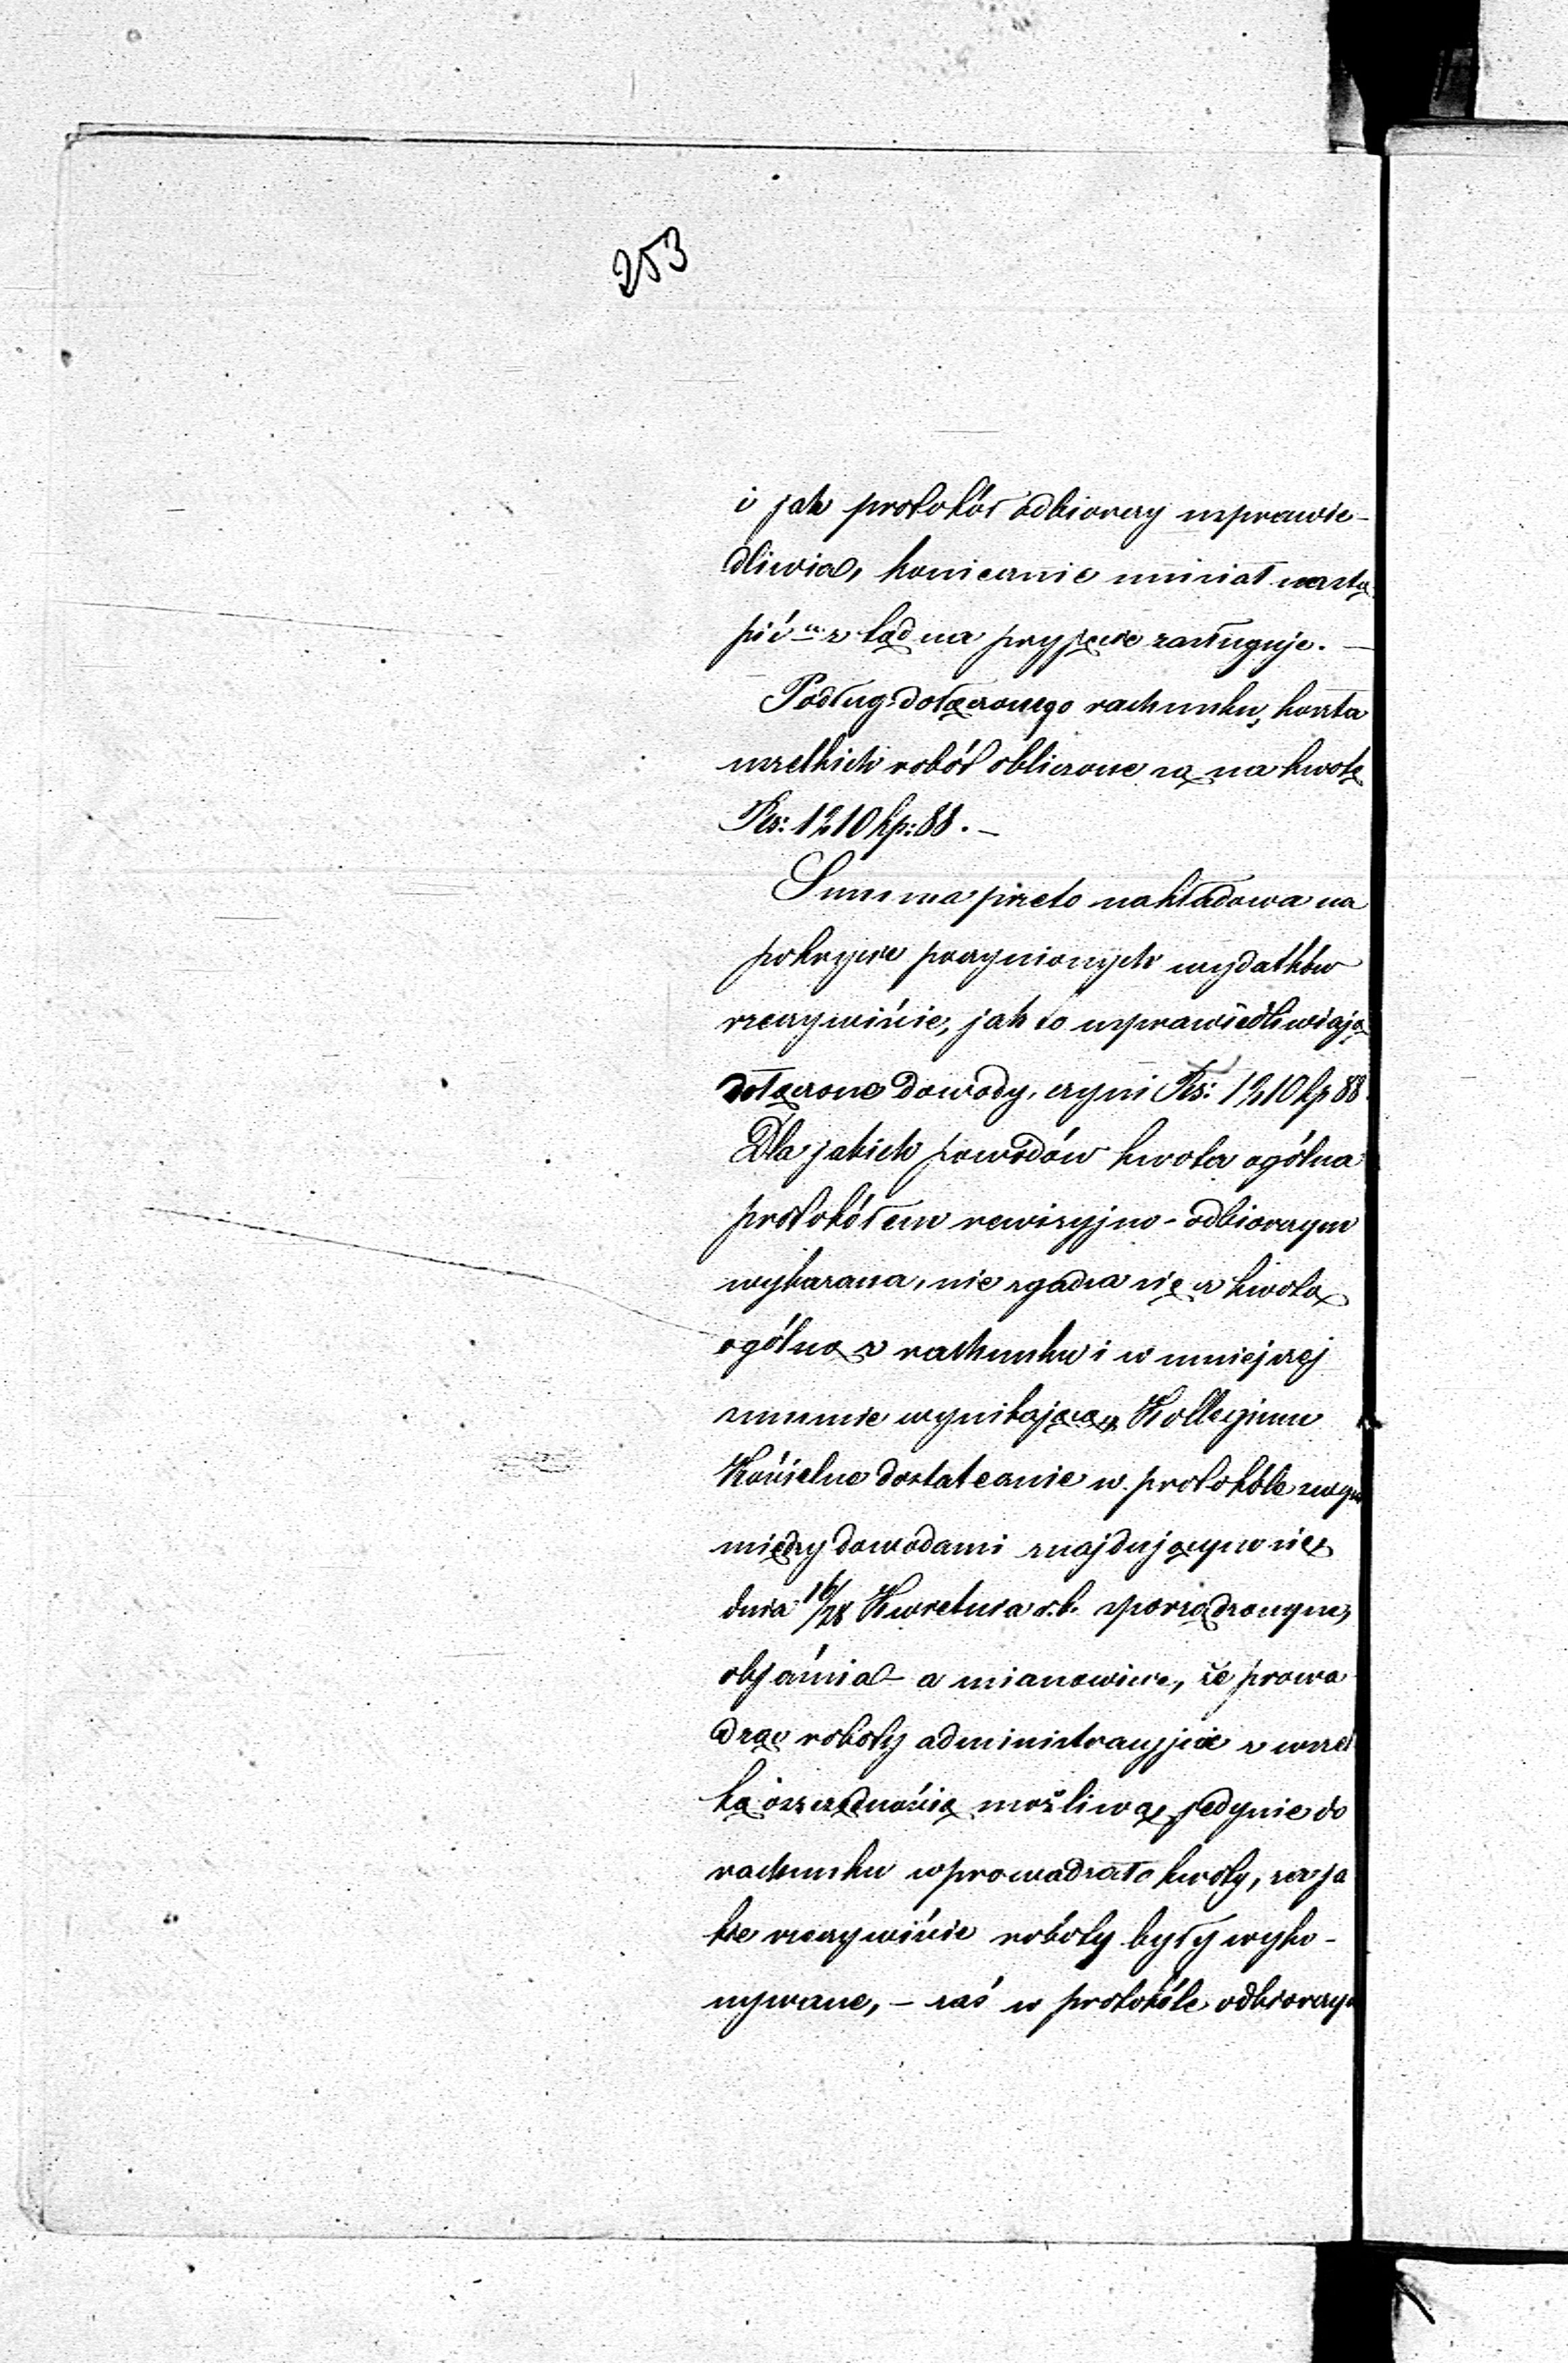 253
i jak protokół odbiorczy usprawie-
dliwia, koniecznie musiał nastą
pić" z kąd na przyjęcie zasługuje. —
Podług dołączonego rachunku, koszta
wszelkich robót obliczone są na kwotę
Rs: 1210 kp: 88. —
Summa przeto nakładowa na
pokrycie poczynionych wydatków
rzeczywiście, jak to usprawiedliwiają
dołączone dowody, czyni Rs: 1210 kp 88.
Dla jakich powodów kwota ogólna
protokółem rewizyjno-odbiorczym
wykazana, nie zgadza się z kwotą
ogólną z rachunku i w mniejszej
summie wynikającą, Kollegium
Kościelne dostatecznie w protokóle swym
między dowodami znajdującym się,
dnia 16/28 Kwietnia r.b. sporządzonym,
objaśnia — a mianowicie, że prowa
dząc roboty administracyjnie z wszel
ką oszczędnością możliwą, jedynie do
rachunku wprowadzało kwoty, za ja
kie rzeczywiście roboty były wyko-
nywane, — zaś w protokóle odbiorczym